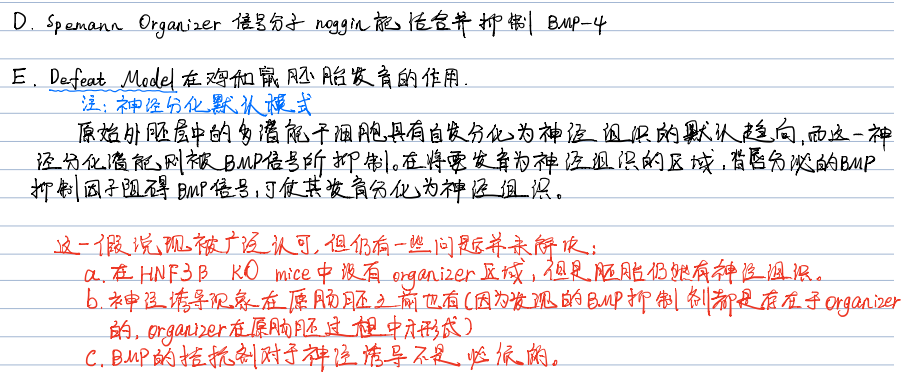 D. Spemann Organizer 信号分子 noggin 能结合并抑制 BMP-4
E. Defeat Model 在鸡和鼠胚胎发育的作用.
注: 神经分化默认模式
原始外胚层中的多潜能干细胞具有自发分化为神经组织的默认趋向,而这一神
经分化潜能则被BMP信号所抑制。在将要发育为神经组织的区域,背唇分泌的BMP
抑制因子阻碍BMP信号,才使其发育分化为神经组织。
这一假说现被广泛认可,但仍有一些问题并未解决:
a. 在 HNF3B KO mice中没有 organizer 区域, 但是胚胎仍然有神经组织。
b. 神经诱导现象在原肠胚之前也有(因为发现的BMP抑制剂都是存在于organizer
的, organizer在原肠胚过程中才形成)
C. BMP的拮抗剂对于神经诱导不是必须的。